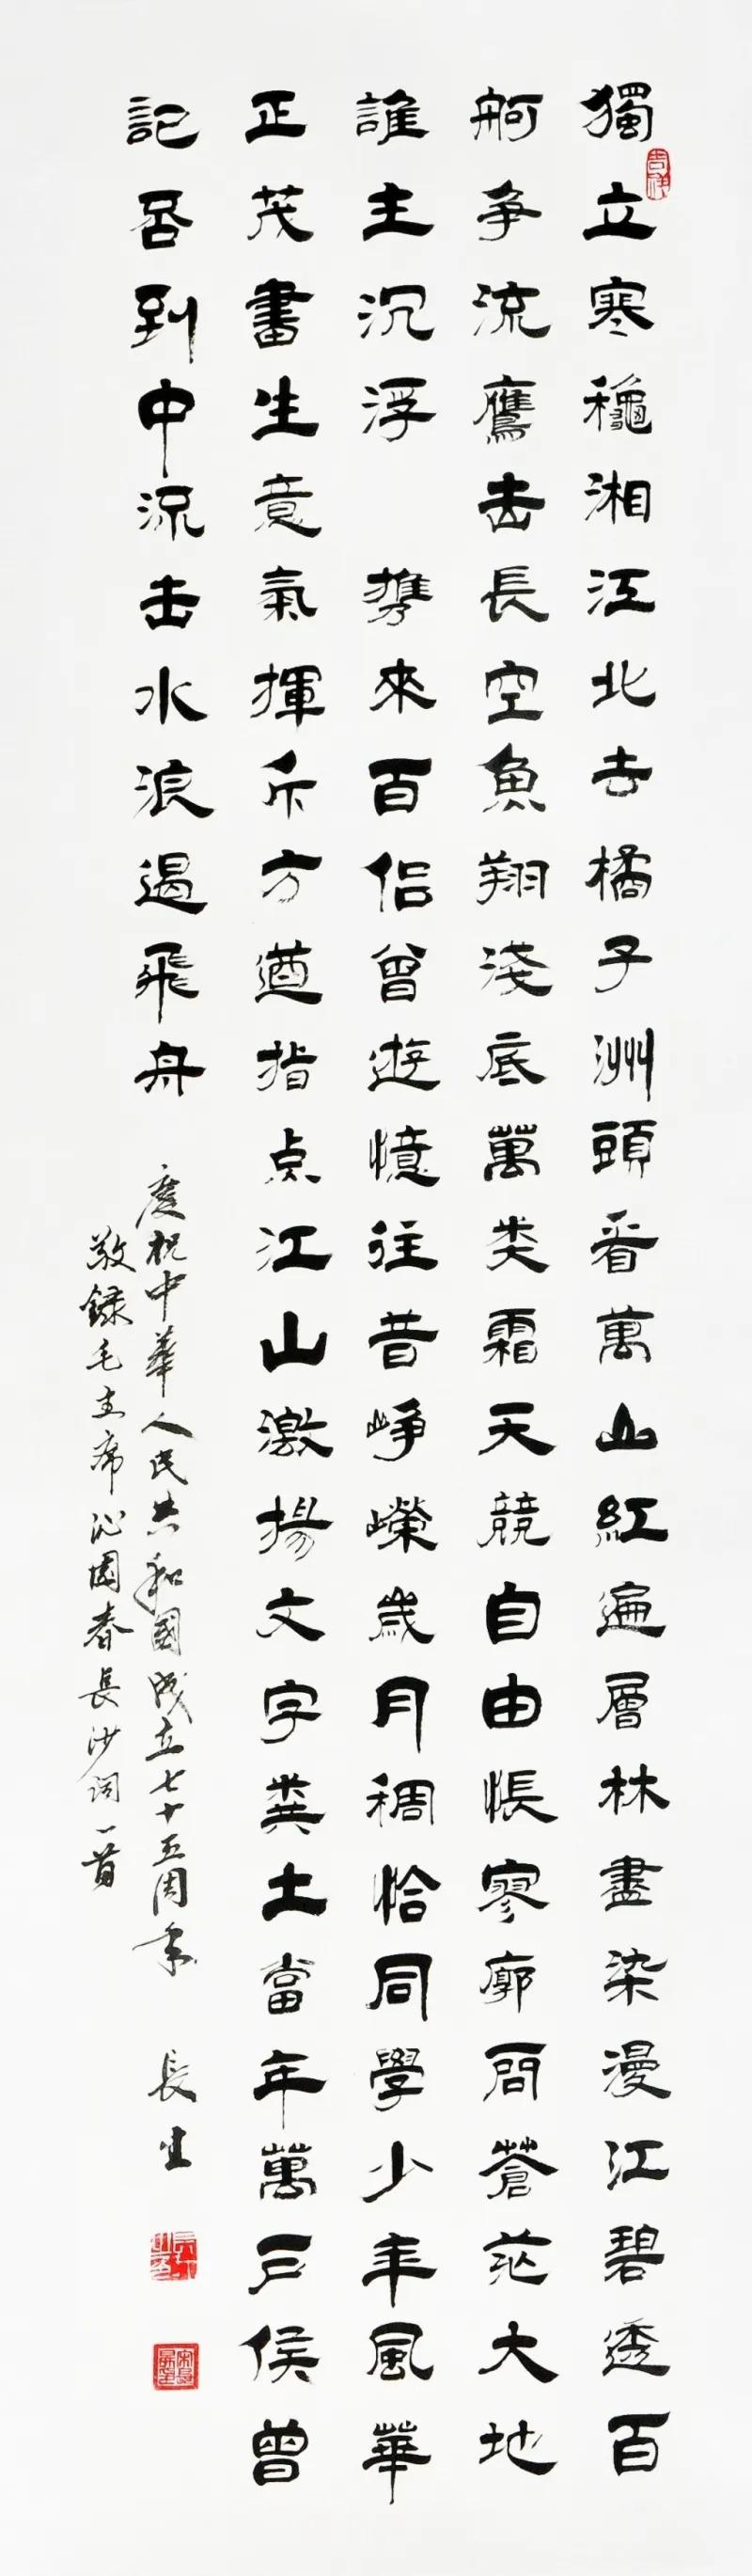 獨立寒龝湘江北去橘子洲頭看萬山紅遍層林盡染漫江碧透百
舸争流鷹击長空魚翔淺底萬类霜天競自由悵寥廓問蒼茫大地
誰主沉浮 携來百侣曾遊憶往昔崢嶸歲月稠恰同學少年風華
正茂書生意氣揮斥方遒指点江山激揚文字糞土當年萬户侯曾
記否到中流击水浪遏飛舟
慶祝中華人民共和國成立七十五周年
敬錄毛主席沁園春長沙詞一首
長生
吉祥